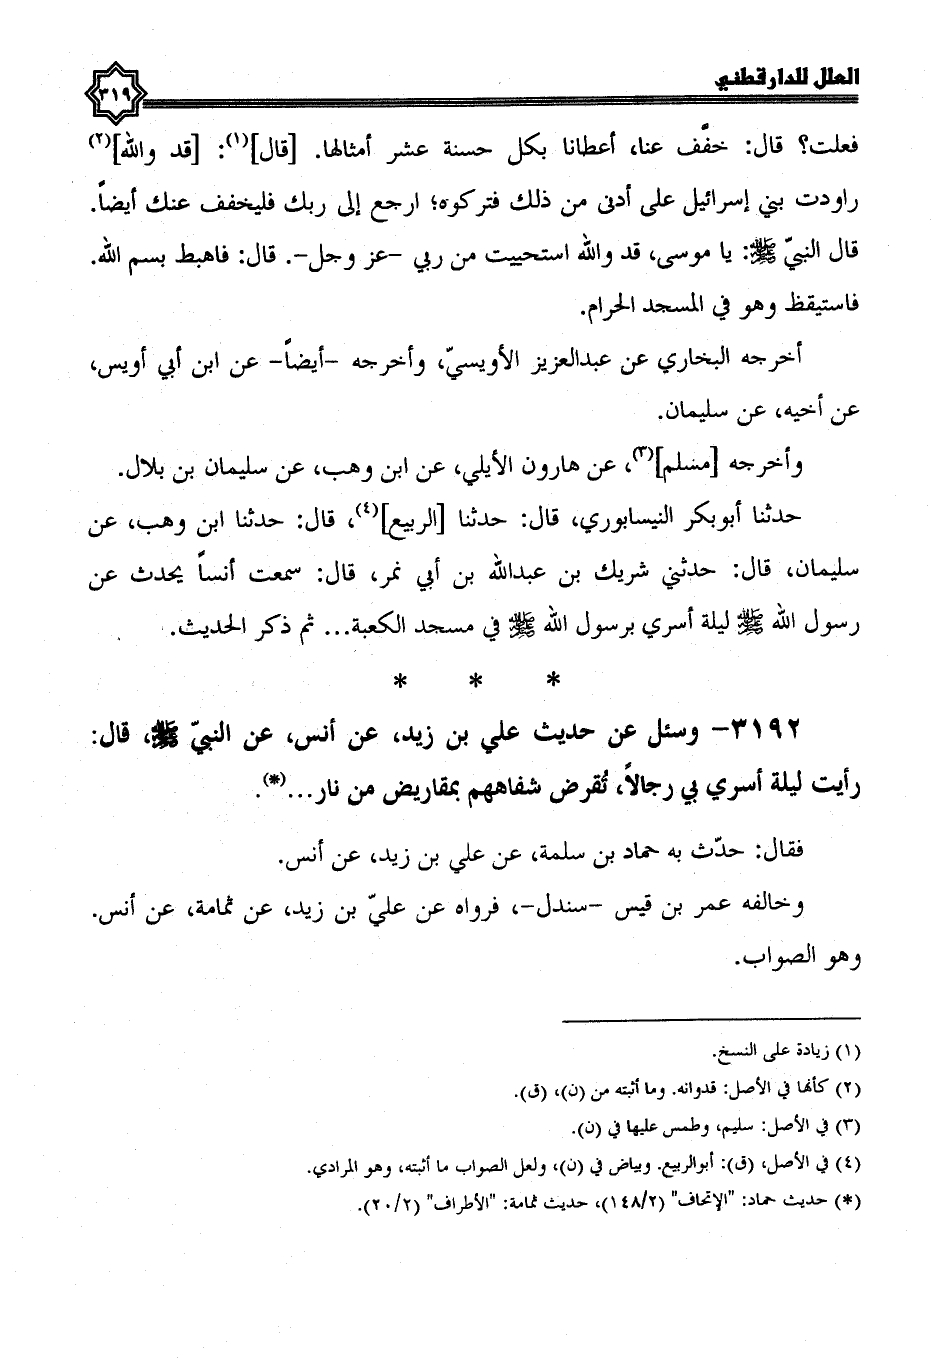 العلل للدارقطني
٣١٩
فعلت؟ قال: خفَّف عنا، أعطانا بكل حسنة عشر أمثالها. [قال](١): [قد والله](٢)
راودت بني إسرائيل على أدنى من ذلك فتركوه؛ ارجع إلى ربك فليخفف عنك أيضاً.
قال النبيّ ﷺ: يا موسى، قد والله استحييت من ربي -عز وجل-. قال: فاهبط بسم الله.
فاستيقظ وهو في المسجد الحرام.
أخرجه البخاري عن عبدالعزيز الأويسيّ، وأخرجه -أيضاً- عن ابن أبي أويس،
عن أخيه، عن سليمان.
وأخرجه [مسلم](٣)، عن هارون الأيلي، عن ابن وهب، عن سليمان بن بلال.
حدثنا أبوبكر النيسابوري، قال: حدثنا [الربيع](٤)، قال: حدثنا ابن وهب، عن
سليمان، قال: حدثني شريك بن عبدالله بن أبي نمر، قال: سمعت أنساً يحدث عن
رسول الله ﷺ ليلة أسري برسول الله ﷺ في مسجد الكعبة... ثم ذكر الحديث.
* * *
٣١٩٢- وسئل عن حديث علي بن زيد، عن أنس، عن النبيّ ﷺ، قال:
رأيت ليلة أسري بي رجالاً، تُقرض شفاههم بمقاريض من نار...(*).
فقال: حدّث به حماد بن سلمة، عن علي بن زيد، عن أنس.
وخالفه عمر بن قيس -سندل-، فرواه عن عليّ بن زيد، عن ثمامة، عن أنس.
وهو الصواب.
(١) زيادة على النسخ.
(٢) كأنها في الأصل: قدوانه. وما أثبته من (ن)، (ق).
(٣) في الأصل: سليم، وطمس عليها في (ن).
(٤) في الأصل، (ق): أبوالربيع. وبياض في (ن)، ولعل الصواب ما أثبته، وهو المرادي.
(*) حديث حماد: "الإتحاف" (١٤٨/٢)، حديث ثمامة: "الأطراف" (٢٠/٢).